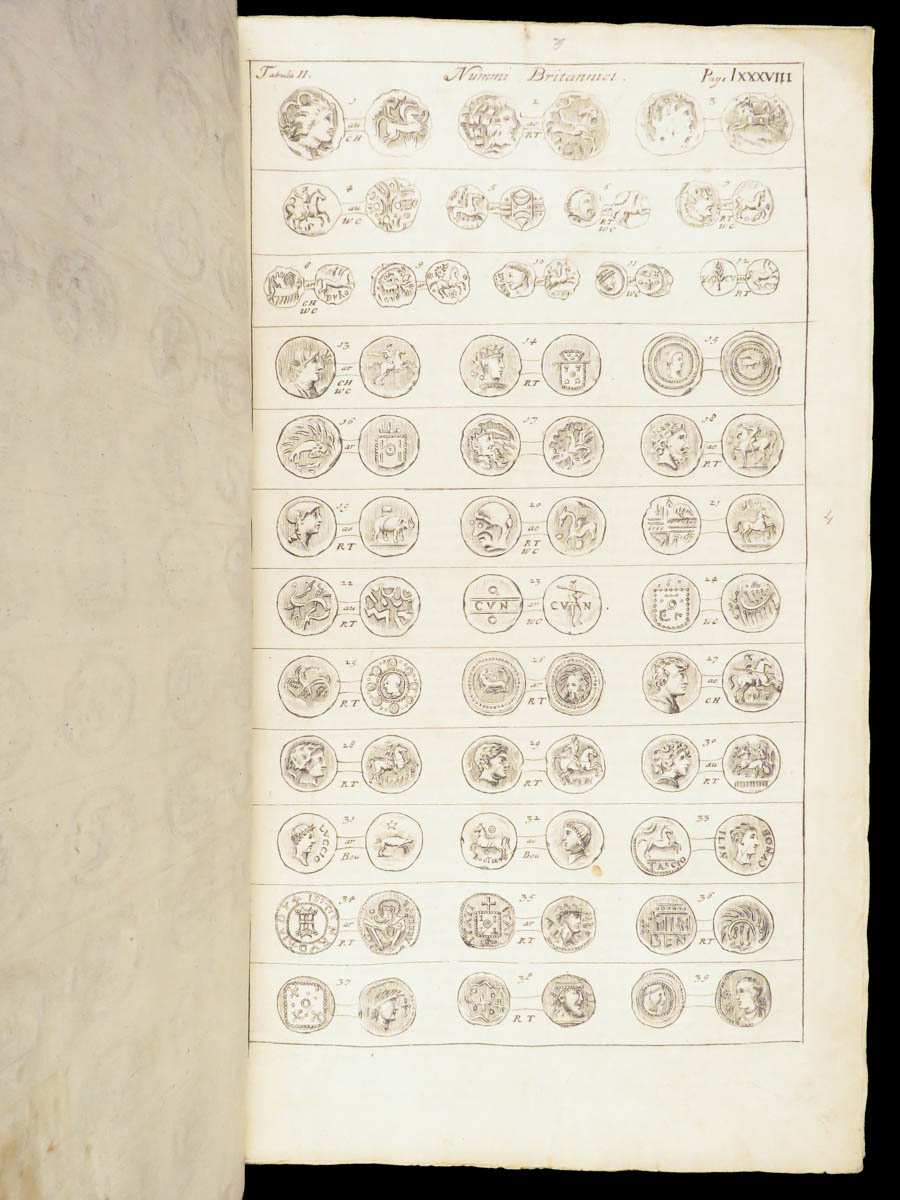 Tabula II. Nummi Britannici. Page lXXXVIII
1 2 3
au ae
CH RT
4 5 6 7
au
WC RT RT
WC WC
8 9 10 11 12
CH WC RT
WC
13 14 15
ar
CH RT
WC
16 17 18
ar ae
RT
19 20 21
ae ae
RT RT
WC
22 23 24
au CVN ar CVN
RT WC WC
25 26 27
ar ae
RT RT CH
28 29 30
au
RT RT RT
31 32 33
LVCCIO ar ae
Bou Bou TASCIO BODVAC
34 35 36
ar ar
RT RT RT
37 38 39
RT